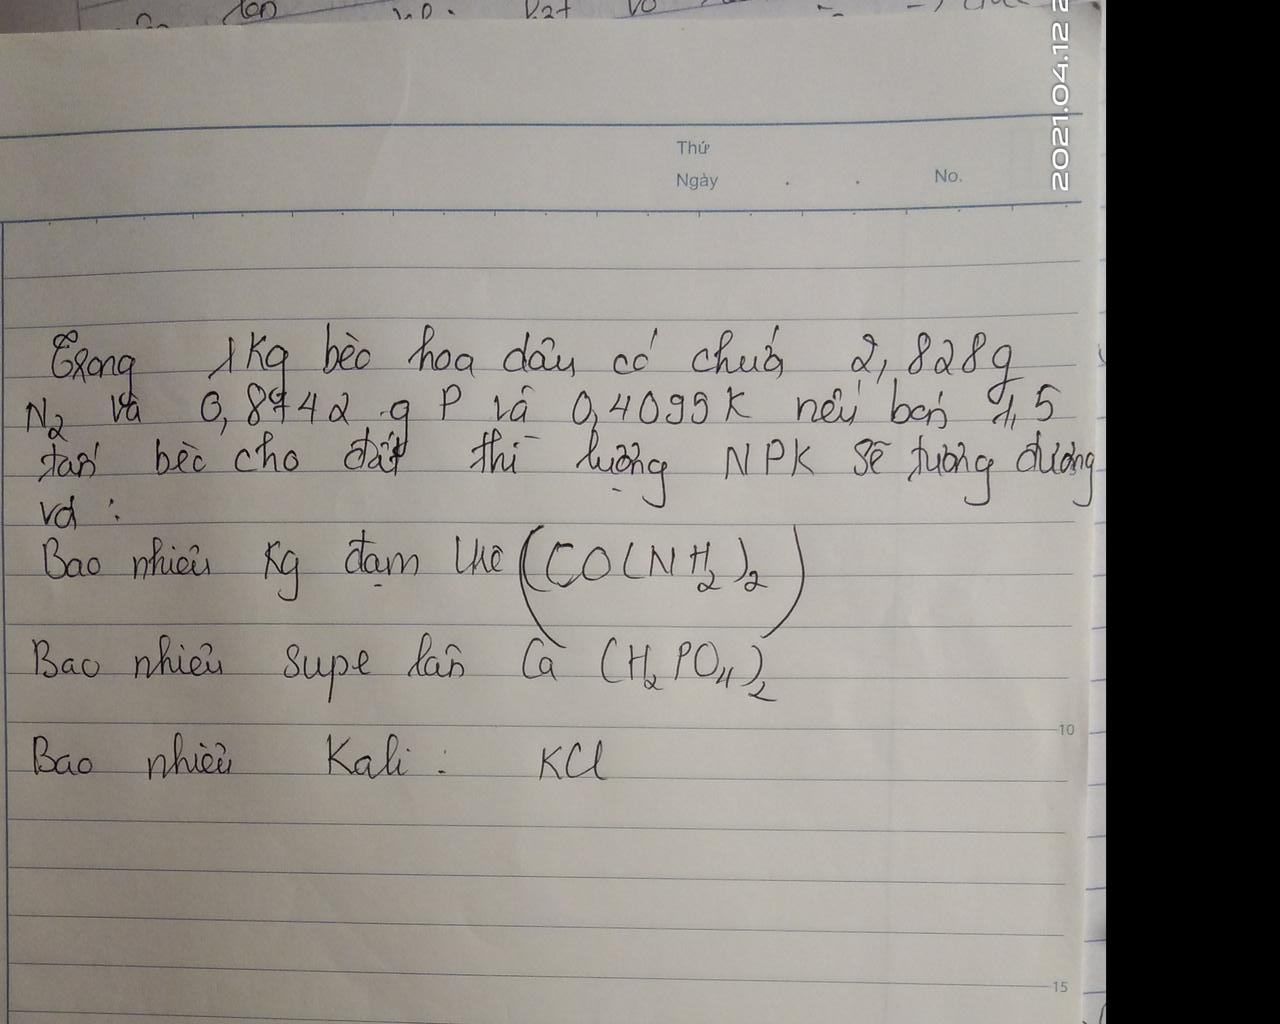 Thứ
Ngày . . No.
Trong 1Kg bèo hoa dâu có chứa 2,828g
N2 và 0,8742 g P và 0,4099K nếu bón 1,5
tấn bèo cho đất thì lượng NPK sẽ tương đương
với :
Bao nhiêu Kg đạm Urê (CO(NH2)2)
Bao nhiêu supe lân Ca (H2PO4)2
10
Bao nhiêu Kali : KCl
15
2021.04.12 2